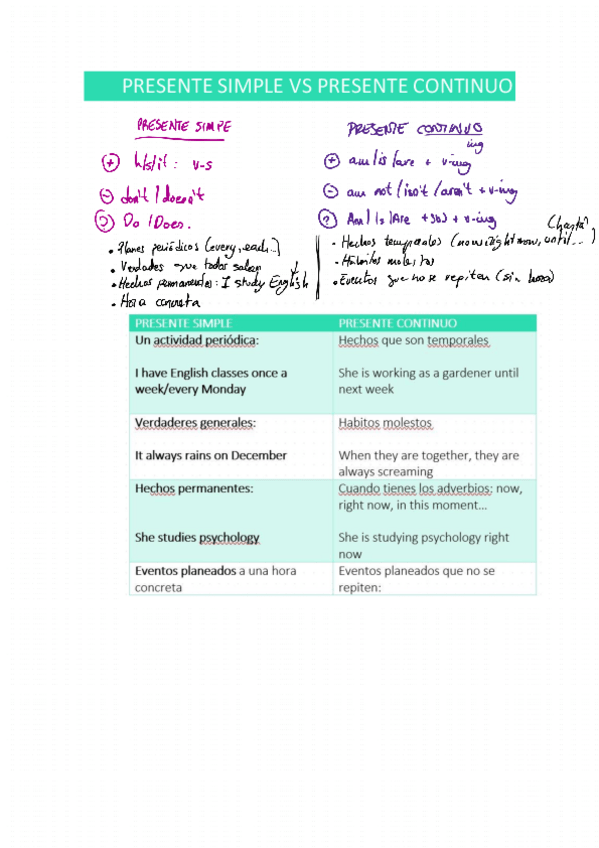 PRESENTE SIMPLE VS PRESENTE CONTINUO
PRESENTE SIMPE
+ h/s/it: v-s
- don't / doesn't
? Do / Does.
• Planes periódicos (every, each...)
• Verdades que todos saben
• Hechos permanentes: I study English
• Hora concreta
PRESENTE CONTINUO
ing
+ am/is/are + v-ing
- am not/isn't/aren't + v-ing
? Am/Is/Are + suj + v-ing
(hasta)
• Hechos temporales (now, right now, until...)
• Hábitos molestos
• Eventos que no se repiten (sin hora)
PRESENTE SIMPLE PRESENTE CONTINUO
Un actividad periódica: Hechos que son temporales
I have English classes once a She is working as a gardener until
week/every Monday next week
Verdaderes generales: Habitos molestos
It always rains on December When they are together, they are
always screaming
Hechos permanentes: Cuando tienes los adverbios: now,
right now, in this moment...
She studies psychology She is studying psychology right
now
Eventos planeados a una hora Eventos planeados que no se
concreta repiten: